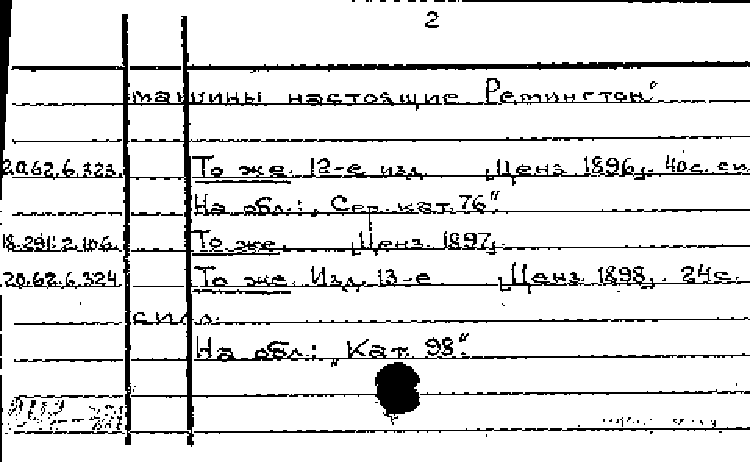 2
машины настоящие Ремингтон"
20.62.6.323. То же. 12-е изд. [Ценз. 1896]. 40 с. с ил
На обл.: "Сер. кат. 76".
18.291.2.106. То же. [Ценз. 1897].
20.62.6.324 То же. Изд. 13-е [Ценз. 1898]. 24 с.
с илл.
На обл.: "Кат. 98".